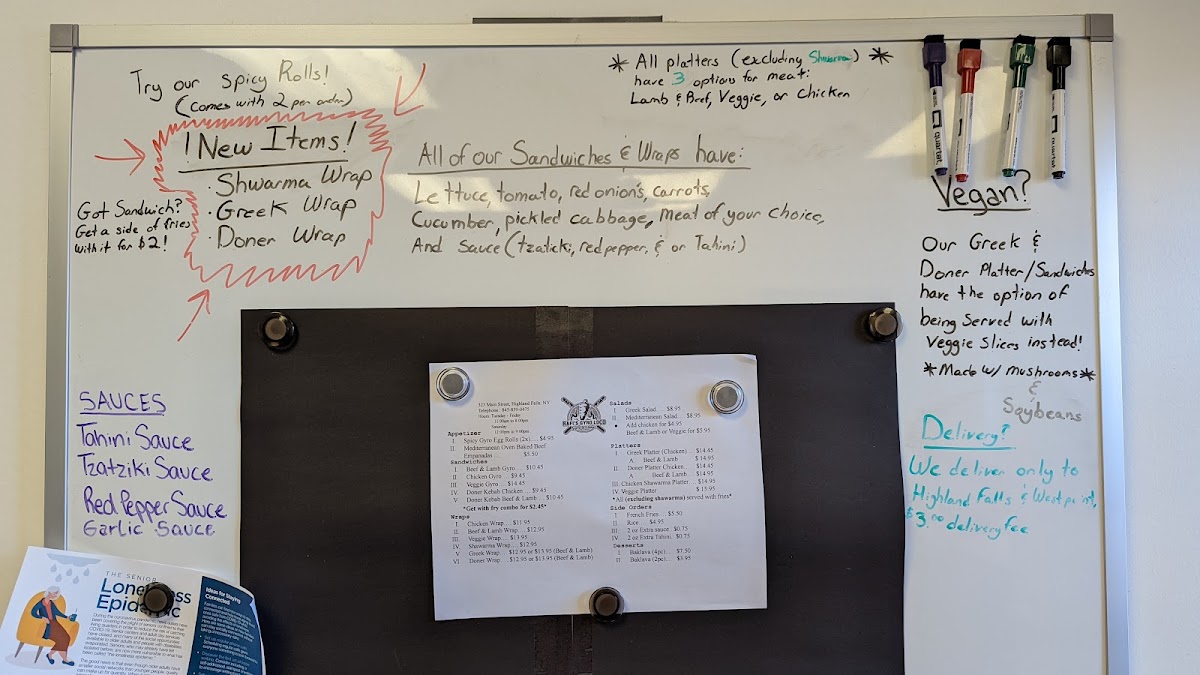 Try our Spicy Rolls!
(Comes with 2 per order)
! New Items!
· Shwarma Wrap
· Greek Wrap
· Doner Wrap
Got Sandwich?
Get a side of fries
with it for $2!
* All platters (excluding Shwarma) *
have 3 options for meat:
Lamb & Beef, Veggie, or Chicken
All of our Sandwiches & Wraps have:
Lettuce, tomato, red onions, carrots,
Cucumber, pickled cabbage, meat of your choice,
And sauce (tzaticki, red pepper, & or Tahini)
quartet
Vegan?
Our Greek &
Doner Platter/Sandwiches
have the option of
being served with
Veggie Slices instead!
*Made w/ mushrooms*
&
Soybeans
Delivery?
We deliver only to
Highland Falls & West point,
$3.00 delivery fee
SAUCES
Tahini Sauce
Tzatziki Sauce
Red Pepper Sauce
Garlic Sauce
Main Street, Highland Falls, NY
Hours: Tuesday - Friday
11:00am to 8:00pm
Saturday
RAFFI'S GYRO LOCO
Appetizer
I. Spicy Gyro Egg Rolls (2x).... $4.95
II. Mediterranean Oven Baked Beef
Empanadas $5.50
Sandwiches
I. Beef & Lamb Gyro..... $10.45
II. Chicken Gyro.... $9.45
III. Veggie Gyro.... $14.45
IV. Doner Kebab Chicken.... $9.45
V. Doner Kebab Beef & Lamb.... $10.45
*Get with fry combo for $2.45*
Wraps
I. Chicken Wrap.... $11.95
II. Beef & Lamb Wrap.... $12.95
III. Veggie Wrap.... $13.95
IV. Shawarma Wrap.... $12.95
V. Greek Wrap.... $12.95 or $13.95 (Beef & Lamb)
VI. Doner Wrap.... $12.95 or $13.95 (Beef & Lamb)
Salads
I. Greek Salad.... $8.95
II. Mediterranean Salad.... $8.95
• Add chicken for $4.95
Beef & Lamb or Veggie for $5.95
Platters
I. Greek Platter (Chicken).... $14.45
A. Beef & Lamb $14.95
II. Doner Platter Chicken.... $14.45
Beef & Lamb $14.95
III. Chicken Shawarma Platter.... $14.95
IV. Veggie Platter $15.95
*All (excluding shawarma) served with fries*
Side Orders
I. French Fries.... $5.50
II. Rice.... $4.95
III. 2 oz Extra sauce $0.75
IV. 2 oz Extra Tahini. $0.75
Desserts
I. Baklava (4pc).... $7.50
II. Baklava (2pc).... $3.95
THE SENIOR
Loneliness
Epidemic
Ideas for Staying
Connected